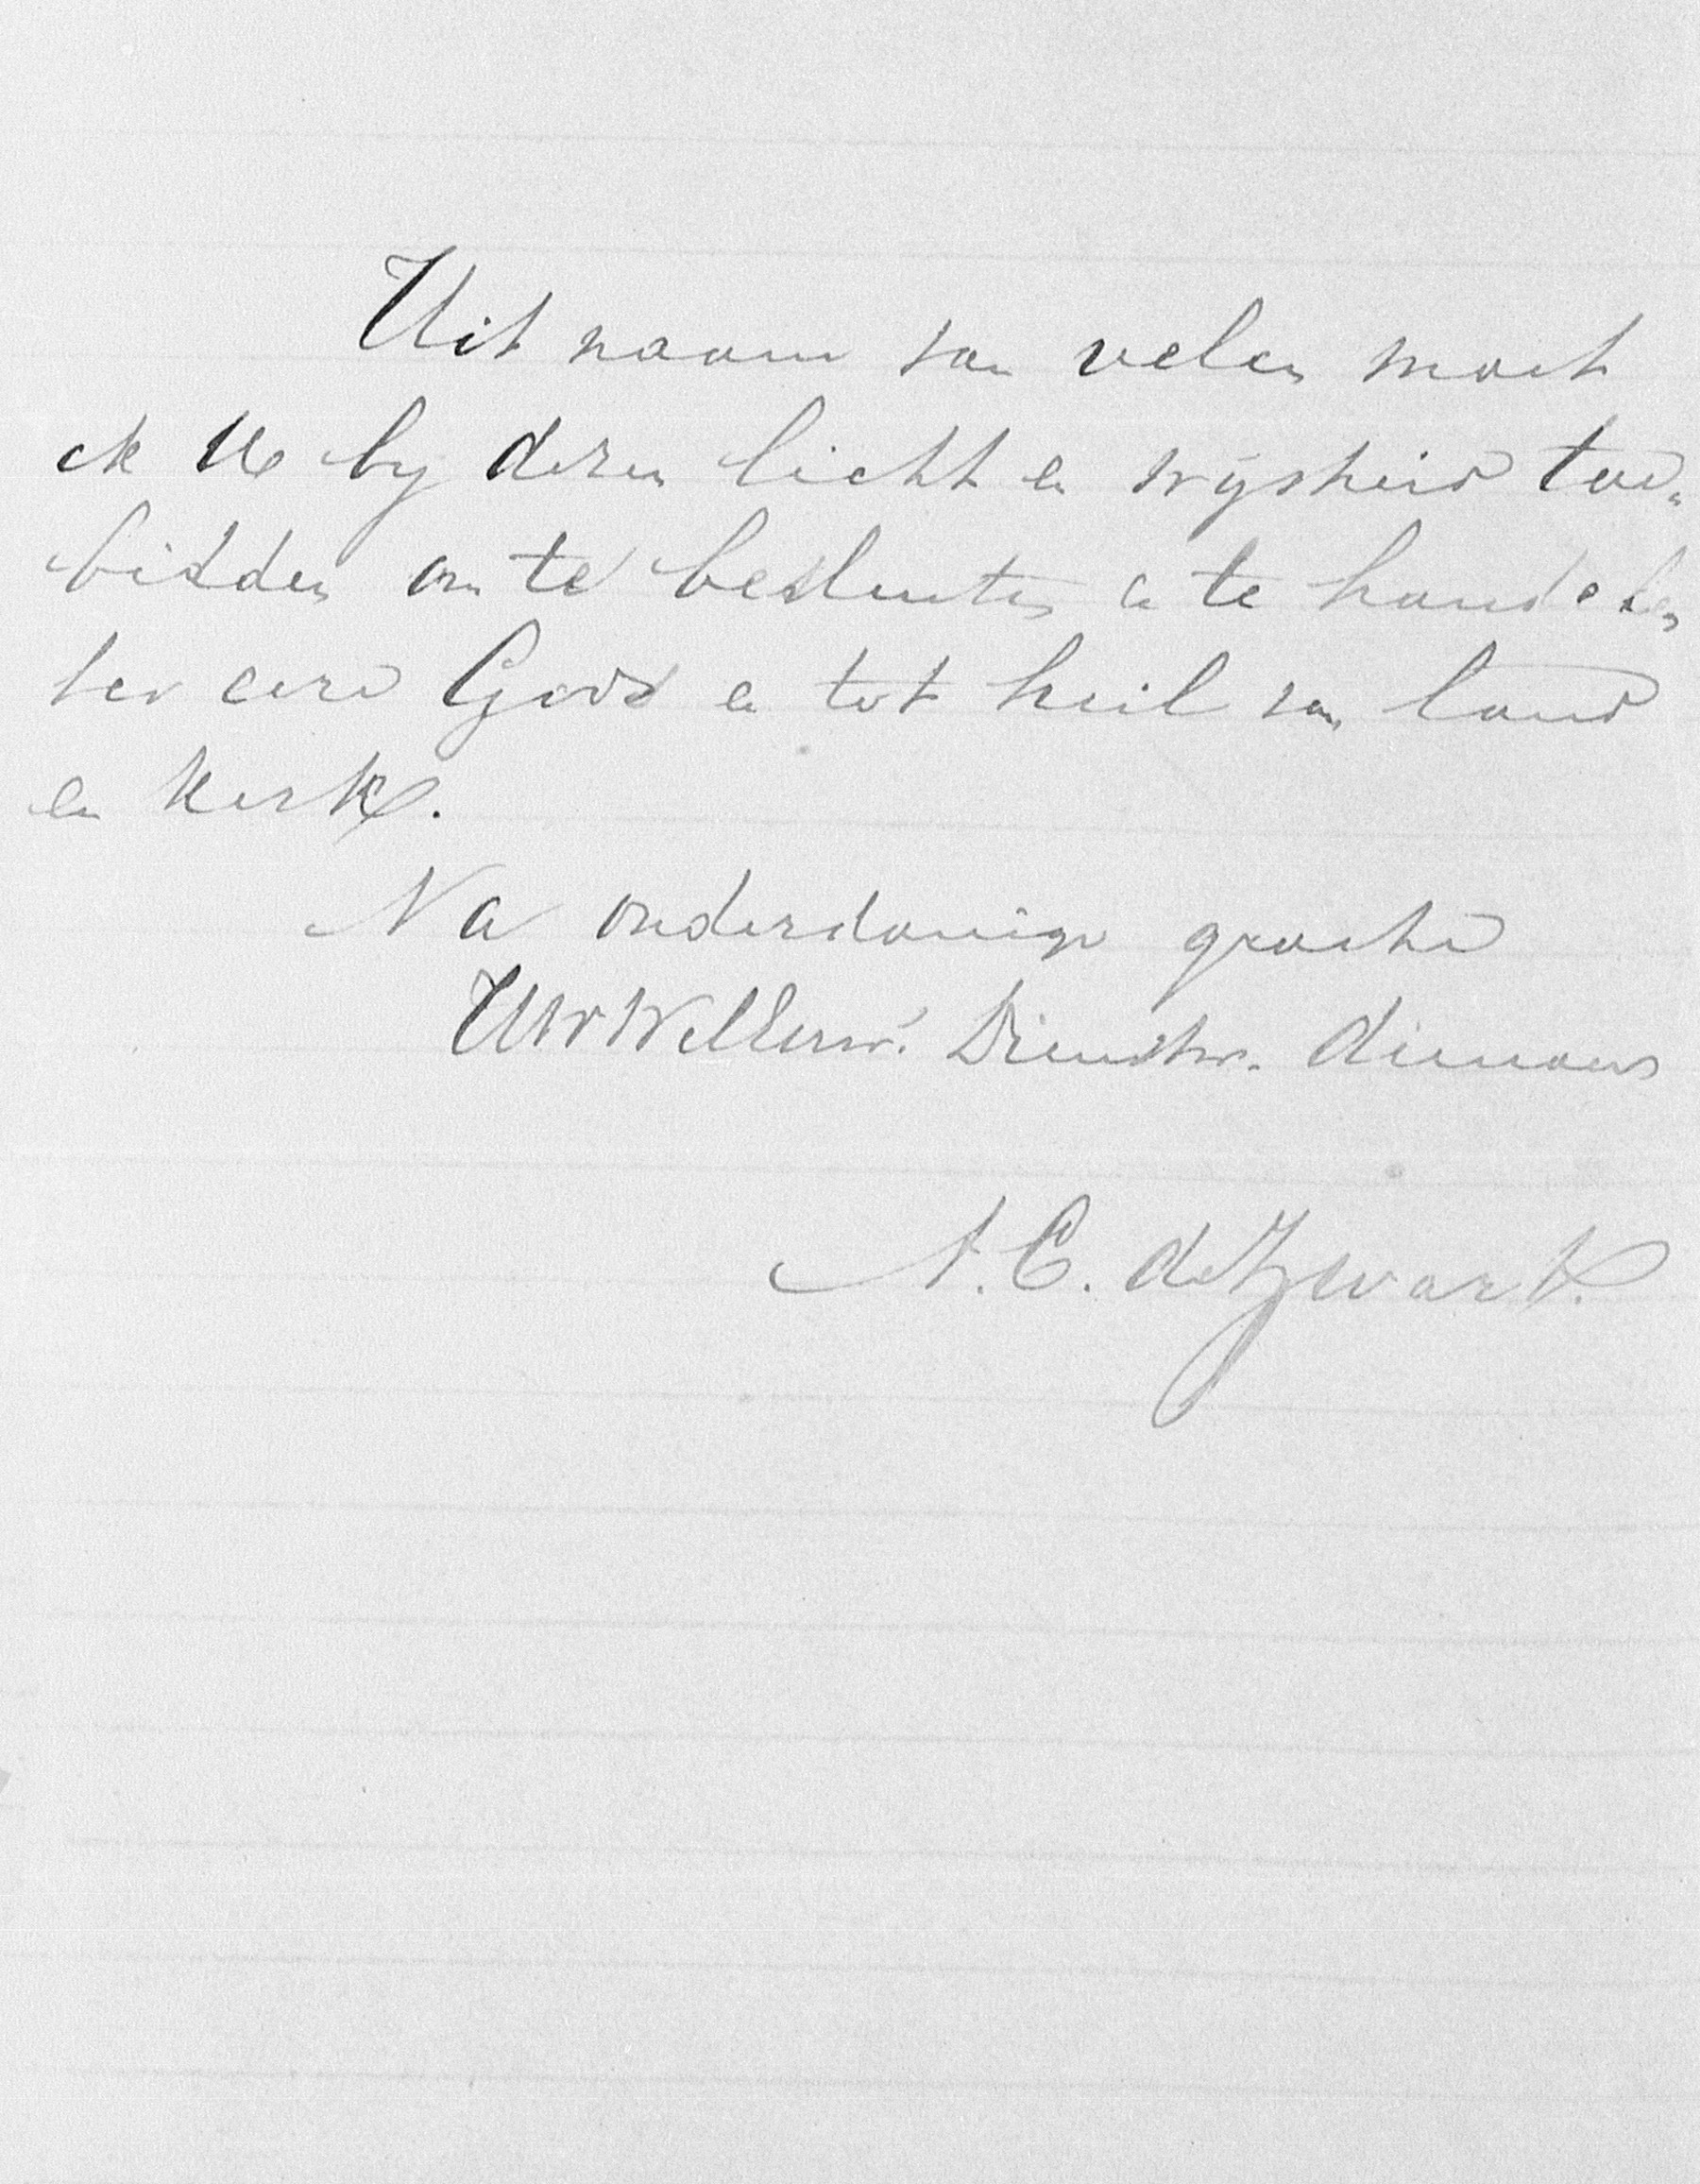 Uit naam van velen mocht
ik U by dezen licht en wysheid toe„
bidden om te besluiten en te handelen
ter eere Gods en tot heil van land
en kerk.
Na onderdanige groete
UwWelEerw. Dienstw. dienaar
A. C. de Zwart.